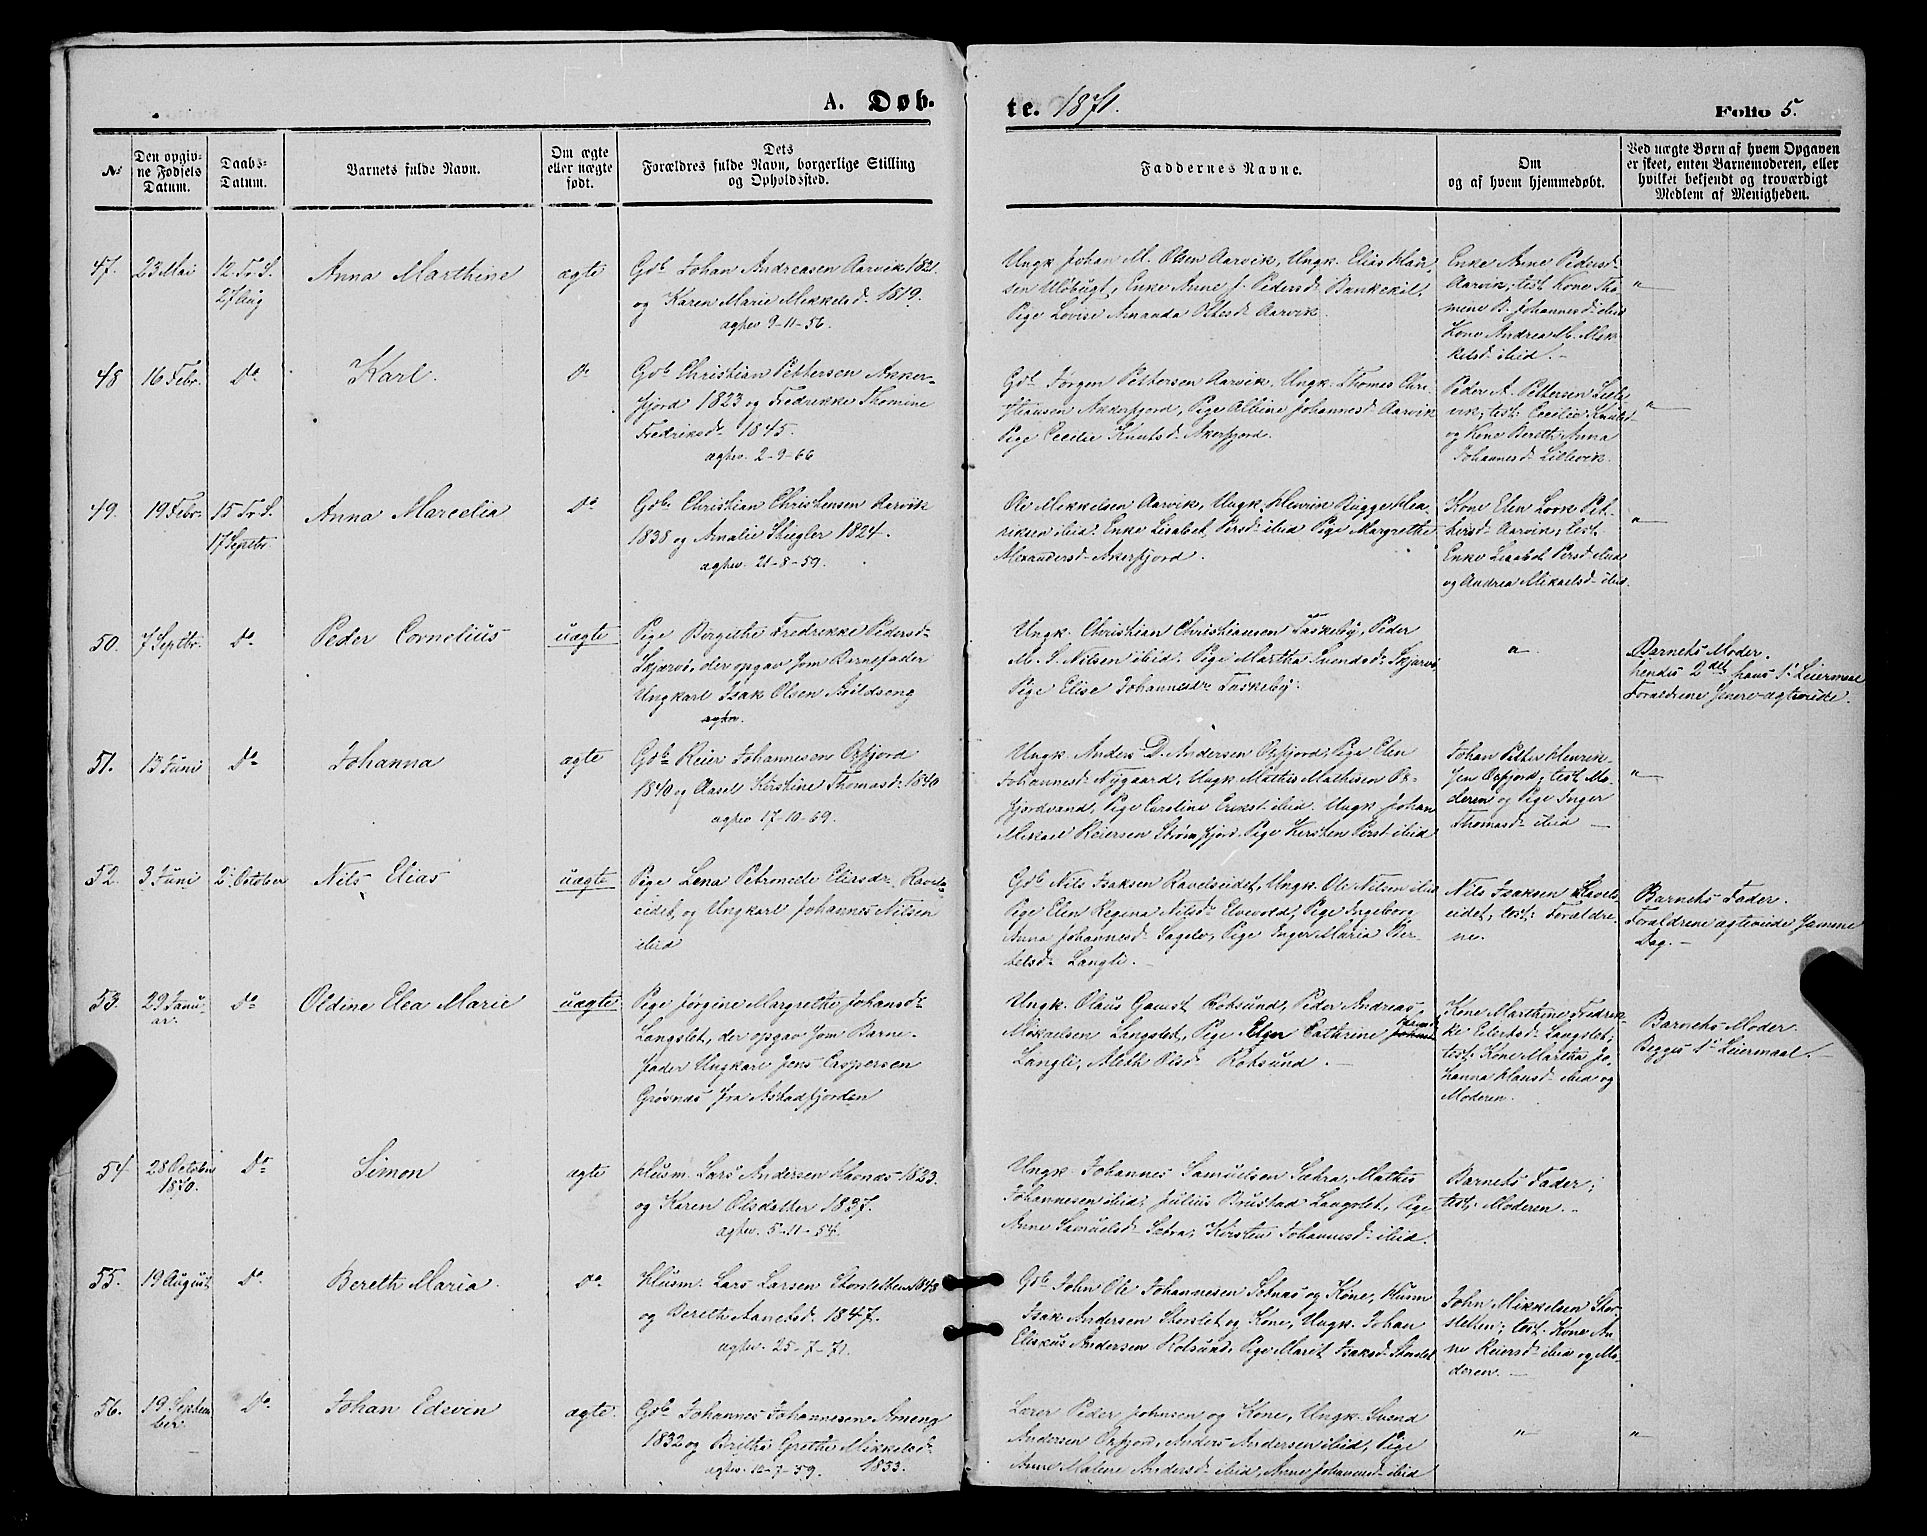 A. Døb-
te. 1871.
Folio 5.
No
Den opgiv-
ne Fødsels
Datum.
Daabs-
Datum.
Barnets fulde Navn.
Om ægte
eller uægte
født.
Dets
Forældres fulde Navn, borgerlige Stilling
og Opholdssted.
Faddernes Navne.
Om
og af hvem hjemmedøbt.
Ved uægte Børn af hvem Opgaven
er skeet, enten Barnemoderen, eller
hvilket bekjendt og troværdigt
Medlem af Menigheden.
47.
23 Mai
12. Tr. S.
27 Aug
Anna Marthine
ægte
Gdb Johan Andreasen Aarvik 1821.
og Karen Marie Mekkelsd. 1819.
agtev 9-11-56.
Ungk Johan M. Olsen Aarvik, Ungk. Elias Han-
sen Ulvbugt, Enke Anne J. Pedersd Bankekil.
Pige Lovise Amanda Olsd Aarvik.
Enke Anne Pedersd
Aarvik, test. Kone Tho
mine B. Johannesd ibid
Kone Andrea M. Mek-
kelsd ibid. -
"
48
16 Febr.
Do
Karl.
Do
Gdb Christian Pettersen Akker-
fjord 1823 og Fredrikke Thomine
Fredriksdr 1845.
agtev. 2-9-66
Gdb Jorgen Pettersen Aarvik, Ungk. Thomas Chri-
stiansen Akkerfjord, Pige Albine Johannesd Aarvik
Pige Cecilie Knutsd Akerfjord.
Peder A. Pettersen Lille
vik, test: Cecilie Knutsd
og Kone Bereth Anna
Johannesd Lillevik.
"
49.
19 Febr.
15 Tr. S.
17 Septbr.
Anna Marcelia
Do
Gdb. Christian Christensen Aarvik
1838 og Amalie Stiegler 1824.
agtev. 21-8-59.
Ole Mekkelsen Aarvik, Ungk. Henrik Rugge Hen
riksen ibid: Enke Lisabet Persd ibid Pige Margrethe
Alexandersd Akerfjord.
Kone Elen Lovk Pet-
tersd Aarvik, test.
Enke Lisabet Persd ibid
og Andrea Mikaelsd ibid.
"
50.
7 Septbr.
Do
Peder Cornelius
uægte
Pige Birgithe Fredrikke Pedersd
Skjærvø, der opgav som Barnefader
Ungkarl Isak Olsen Kildseng
agtev.
Ungk. Christian Christiansen Taskeby, Peder
M. S. Nilsen ibid. Pige Martha Svendsd Skjærvø
Pige Elise Johannesdr Taskeby.
"
Barnets Moder.
hendes 2det hans 1' Leiermaal
Forældrene senere agteviede.
51.
13 Juni
Do
Johanna
ægte
Gdb Reier Johannesen Oxfjord
1840 og Aasel Kirstine Thomasd 1840
agtev 17-10-69.
Ungk. Anders D. Andersen Oxfjord, Pige Elen
Johannesd Nygaard, Ungk Mathis Mathisen Ox-
fjordvand, Pige Caroline Erikst ibid. Ungk Johan
Mikael Reiersen Strømfjord. Pige Kirsten Perst ibid
Johan Petter Henrik-
sen Oxfjord, test. Mo-
deren og Pige Inger
Thomasd ibid
"
52.
3 Juni
2. October
Nils Elias
uægte
Pige Lena Petronele Eliasdr Ravels
eidet, og Ungkarl Johannes Nilsen
ibid
Gdb Nils Isaksen Ravelseidet, Ungk. Ole Nilsen ibid
Pige Elen Regina Nilsd Elvevold, Pige Ingeborg
Anna Johannesd Sagelv, Pige Inger Maria Ber-
telsd Langli. -
Nils Isaksen Ravels-
eidet, test: Forældre-
ne.
Barnets Fader.
Forældrene agteviede samme
Dag. -
53.
29 Janu-
ar.
Do
Oldine Elea Marie
uægte
Pige Jørgine Margrethe Johansd
Langslet, der opgav som Barne-
fader Ungkarl Jens Caspersen
Grøsnæs fra Astadfjorden
Ungk. Olaus Gamst Rotsund, Peder Andreas
Mikaelsen Langslet, Pige Elger Cathrine
Langli, Aleth Olsd Rotsund. -
Kone Marthine Fredrik-
ke Eilertsd Langslet;
test: Kone Martha Jo-
hanna Hansd ibid og
Moderen.
Barnets Moder.
Begges 1' Leiermaal. -
54
28 October
1870.
Do
Simon
ægte
Husm. Lars Andersen Havnæs 1823.
og Karen Olsdatter 1837.
agtev. 5-11-54.
Ungk. Johannes Samuelsen Sætra, Mathis
Johannesen ibid; Julius Brustad Langslet, Pige
Anne Samuelsd Sætra, Kirsten Johannesd ibid.
Barnets Fader;
test: Moderen. -
55.
19 August
Do
Bereth Maria
Do.
Husm. Lars Larsen Storsletten 1843
og Bereth Aanetsd. 1847.
agtev. 25-7-71.
Gdb John Ole Johannesen Sotnæs og Kone, Husm
Isak Andersen Storslet og Kone, Ungk. Johan
Eliseus Andersen Rotsund, Pige Marit Isaksd Storslet
John Mikkelsen Stor-
sletten; test. Kone An-
ne Reiersd ibid og Mo-
deren. -
56.
19 Septem
ber
Do
Johan Edevin
ægte.
Gdb Johannes Johannesen Ameng
1832 og Britha Grethe Mikkelsd
1833.
agtev. 12-7-59.
Lærer Peder Johnsen og Kone, Ungk. Svend
Andersen Oxfjord, Anders Andersen ibid, Pige
Anne Malene Andersd ibid, Anne Johannesd ibid
"
"